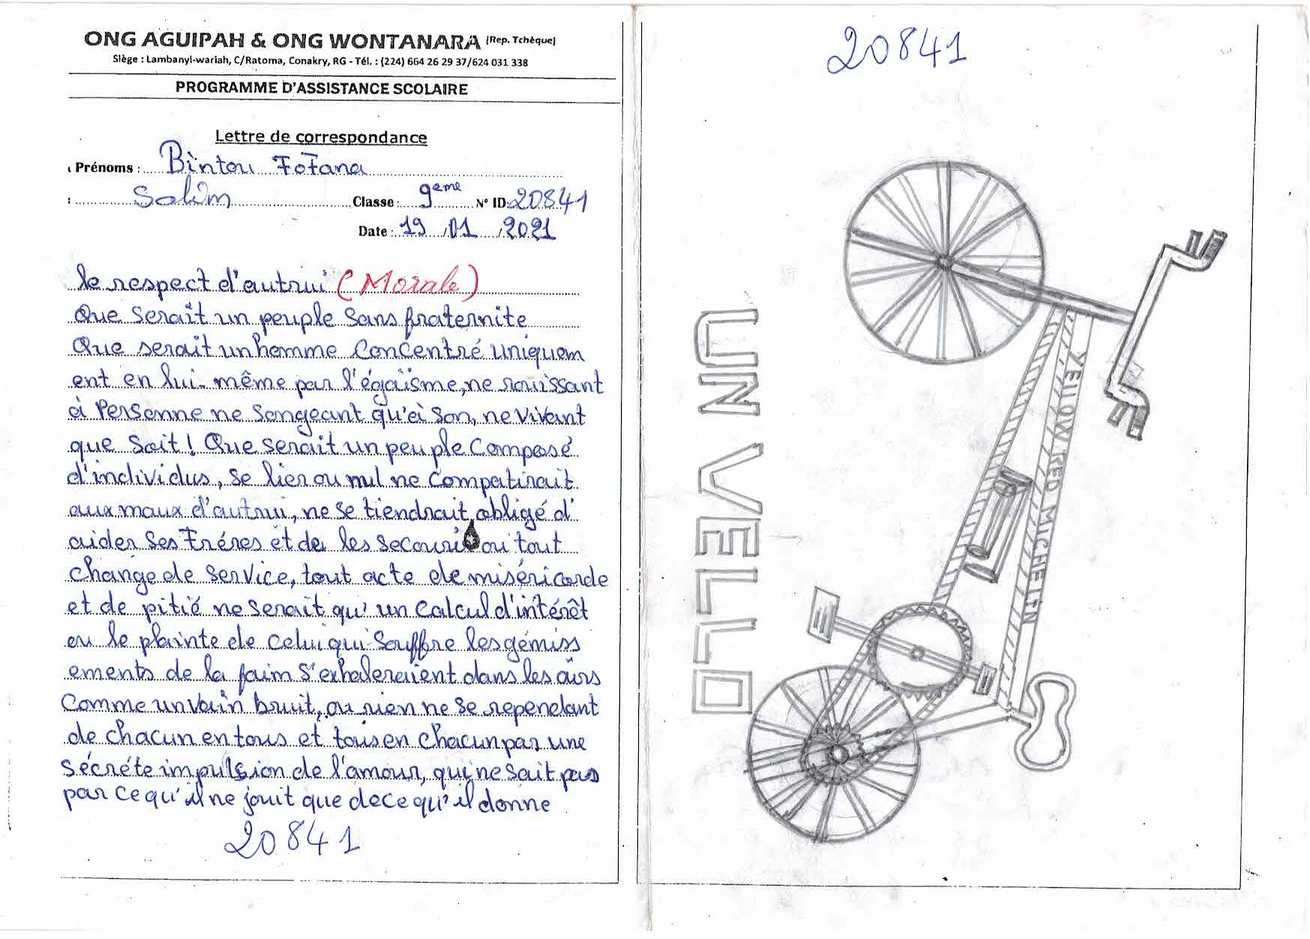 ONG AGUIPAH & ONG WONTANARA (Rep. Tchèque)
Siège : Lambanyi-wariah, C/Ratoma, Conakry, RG - Tél. : (224) 664 26 29 37/624 031 338
PROGRAMME D'ASSISTANCE SCOLAIRE
Lettre de correspondance
Prénoms : Bintou Fofana
: Salim Classe : 9eme N° ID: 20841
Date : 19 /01 /2021
le respect d'autrui (Morale)
Que serait un peuple sans fraternite
Que serait un homme concentré uniquem
ent en lui-même par l'égoïsme, ne
à Personne ne songeant qu'à son, ne vivant
que soit ! Que serait un peuple composé
d'individus, se lien ou nul ne compatirait
aux maux d'autrui, ne se tiendrait obligé d'
aider ses Fréres et de les secouri ou tout
change de service, tout acte de miséricorde
et de pitié ne serait qu'un calcul d'intérêt
ou le plainte de celui qui souffre les gémiss
ements de la faim s'exhaleraient dans les airs
comme un vain bruit, ou rien ne se rependant
de chacun en tous et tous en chacun par une
sécréte impulsion de l'amour, qui ne sait pas
par ce qu'il ne jouit que de ce qu'il donne
20841
20841
UN VELLO
YELLOW RED MICHELIEN